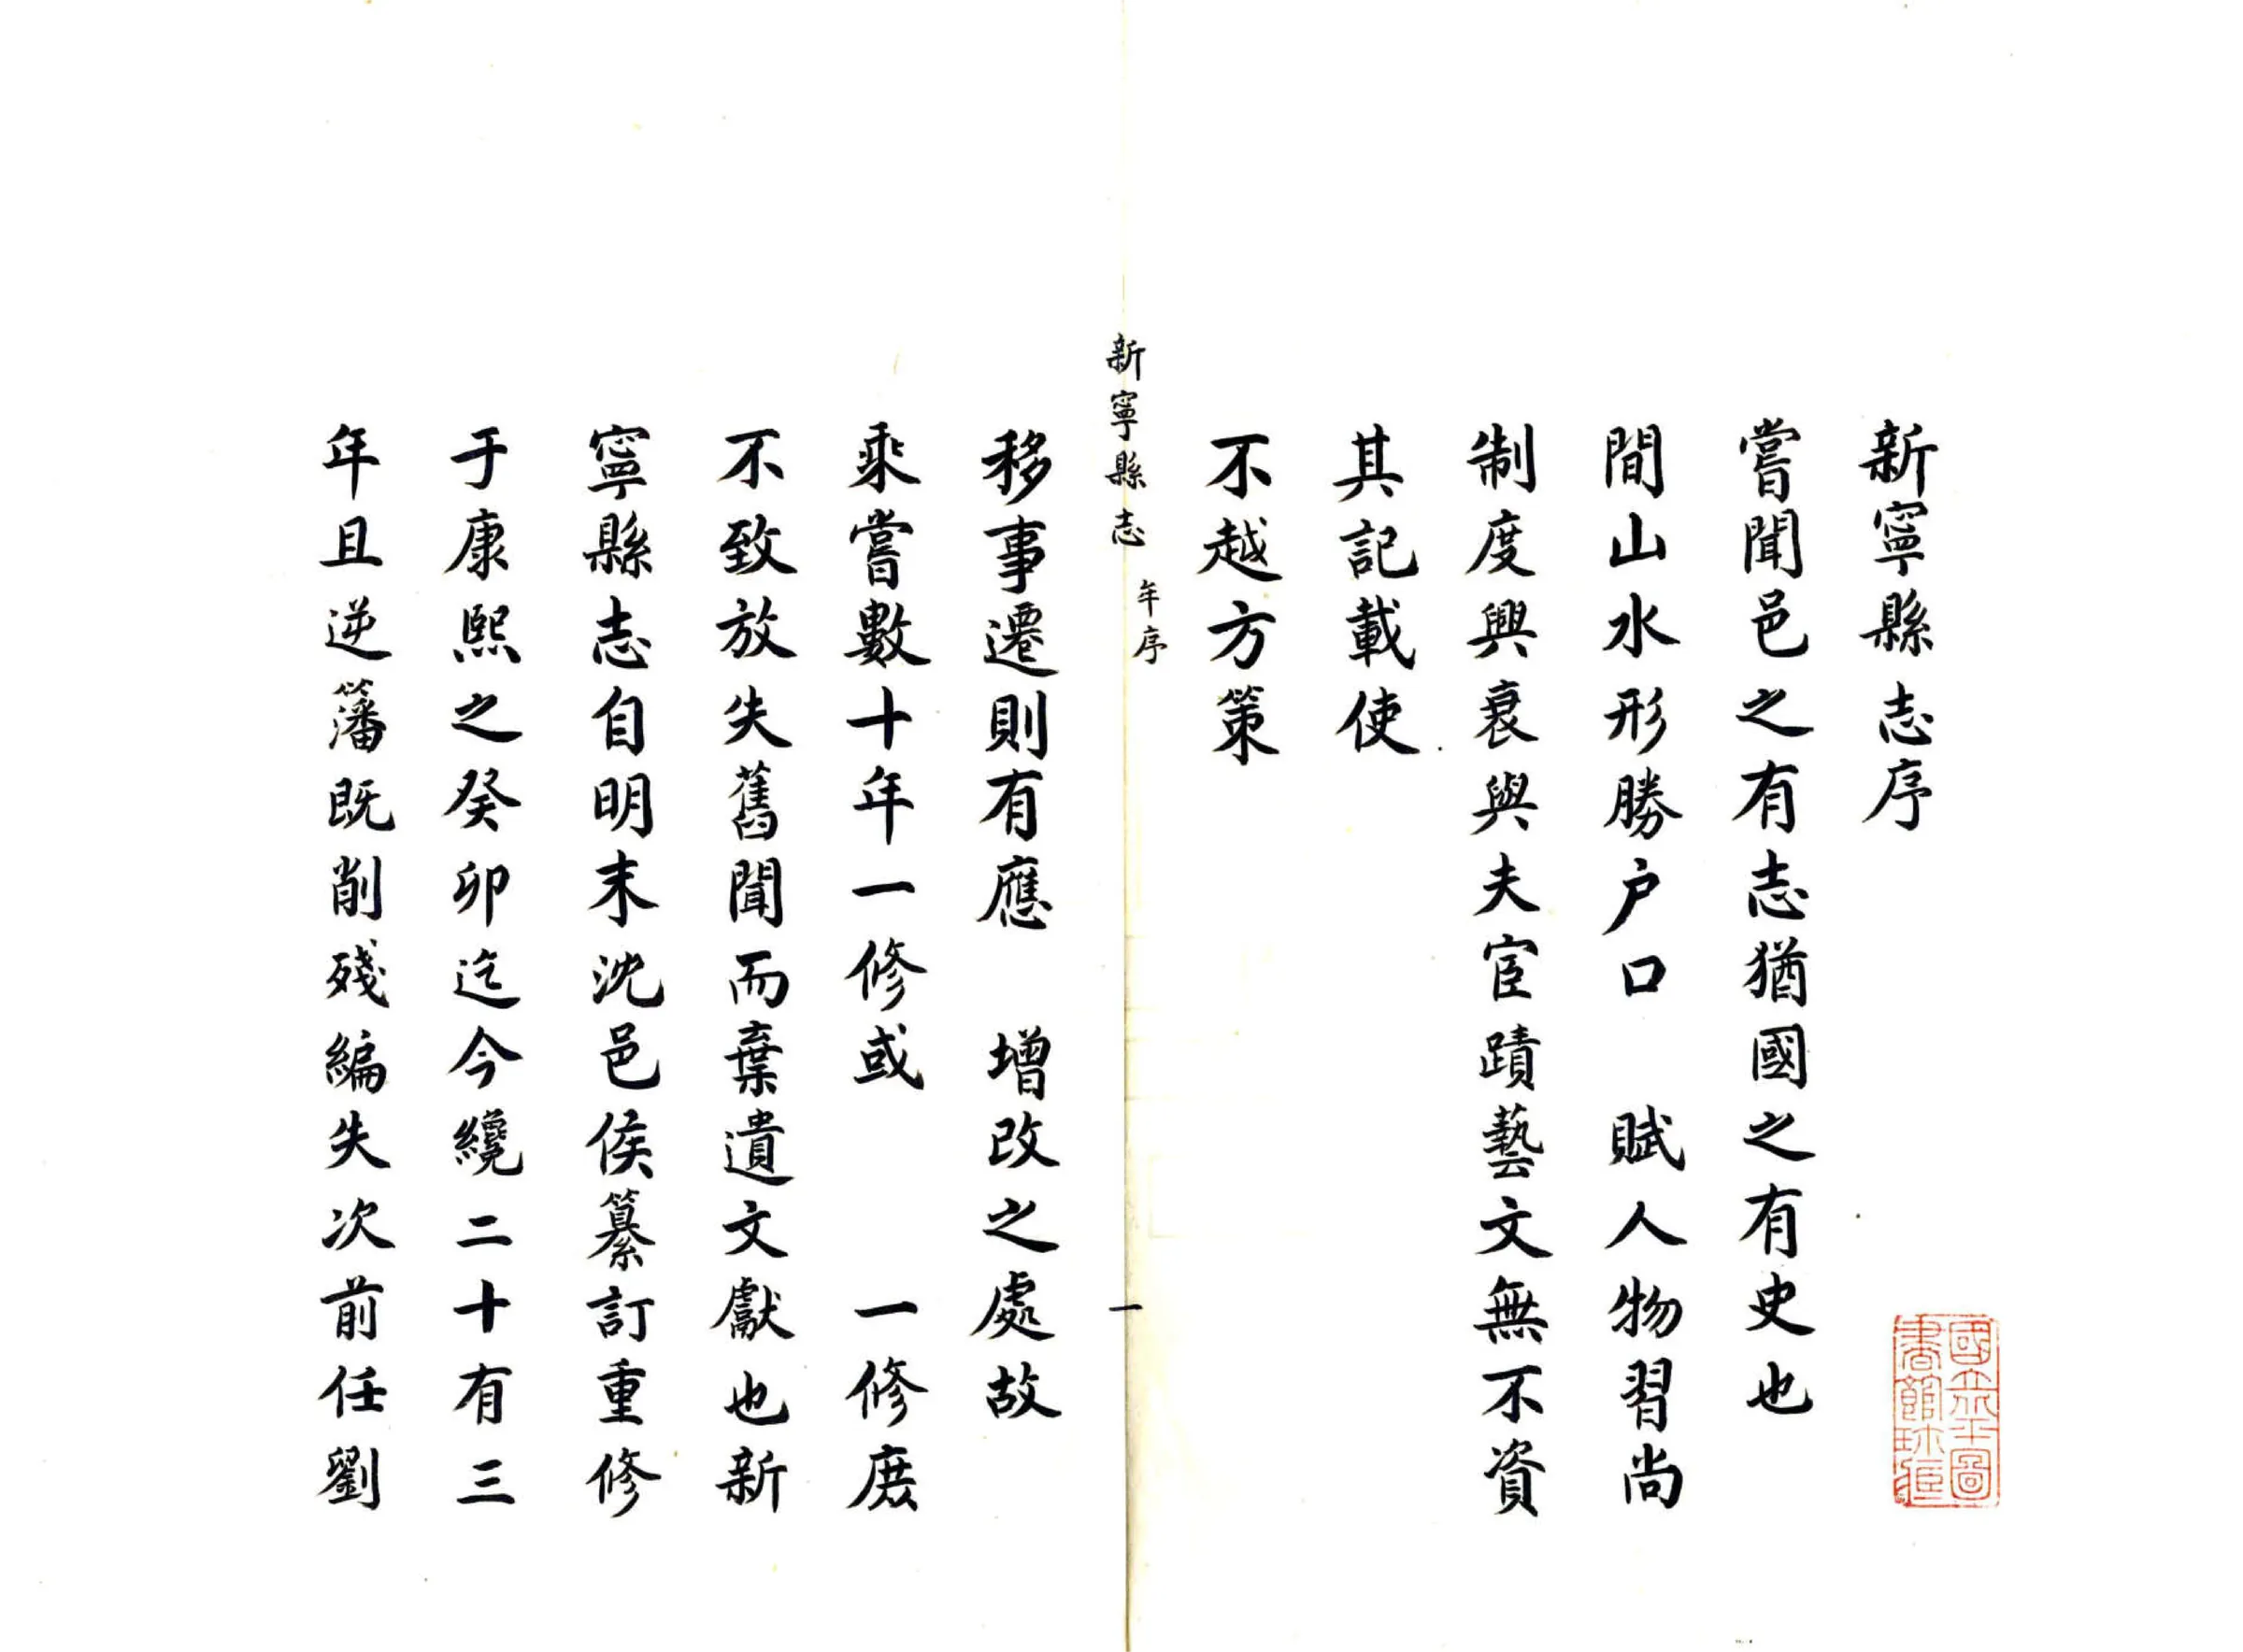 新寧縣志序
嘗聞邑之有志猶國之有史也
間山水形勝户口 賦人物習尚
制度興衰與夫宦蹟藝文無不資
其記載使
不越方策
新寧縣志 年序 一
移事遷則有應 增改之處故
乘嘗數十年一修或 一修庶
不致放失舊聞而棄遺文獻也新
寧縣志自明末沈邑侯纂訂重修
于康熙之癸卯迄今纔二十有三
年且逆籓既削殘編失次前任劉
國立北平圖
書館珍藏